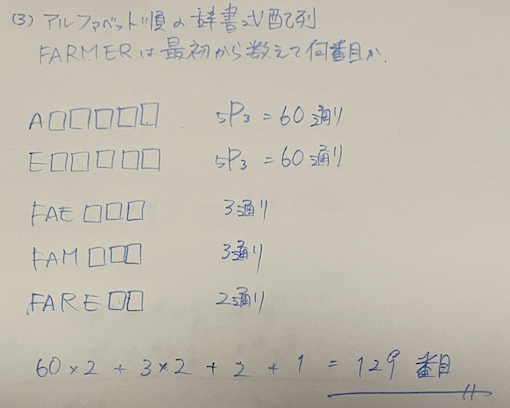 (3) アルファベット順の辞書式配列
FARMERは最初から数えて何番目か.
A□□□□□ ₅P₃ = 60通り
E□□□□□ ₅P₃ = 60通り
FAE□□□ 3通り
FAM□□□ 3通り
FARE□□ 2通り
60×2 + 3×2 + 2 + 1 = 129 番目